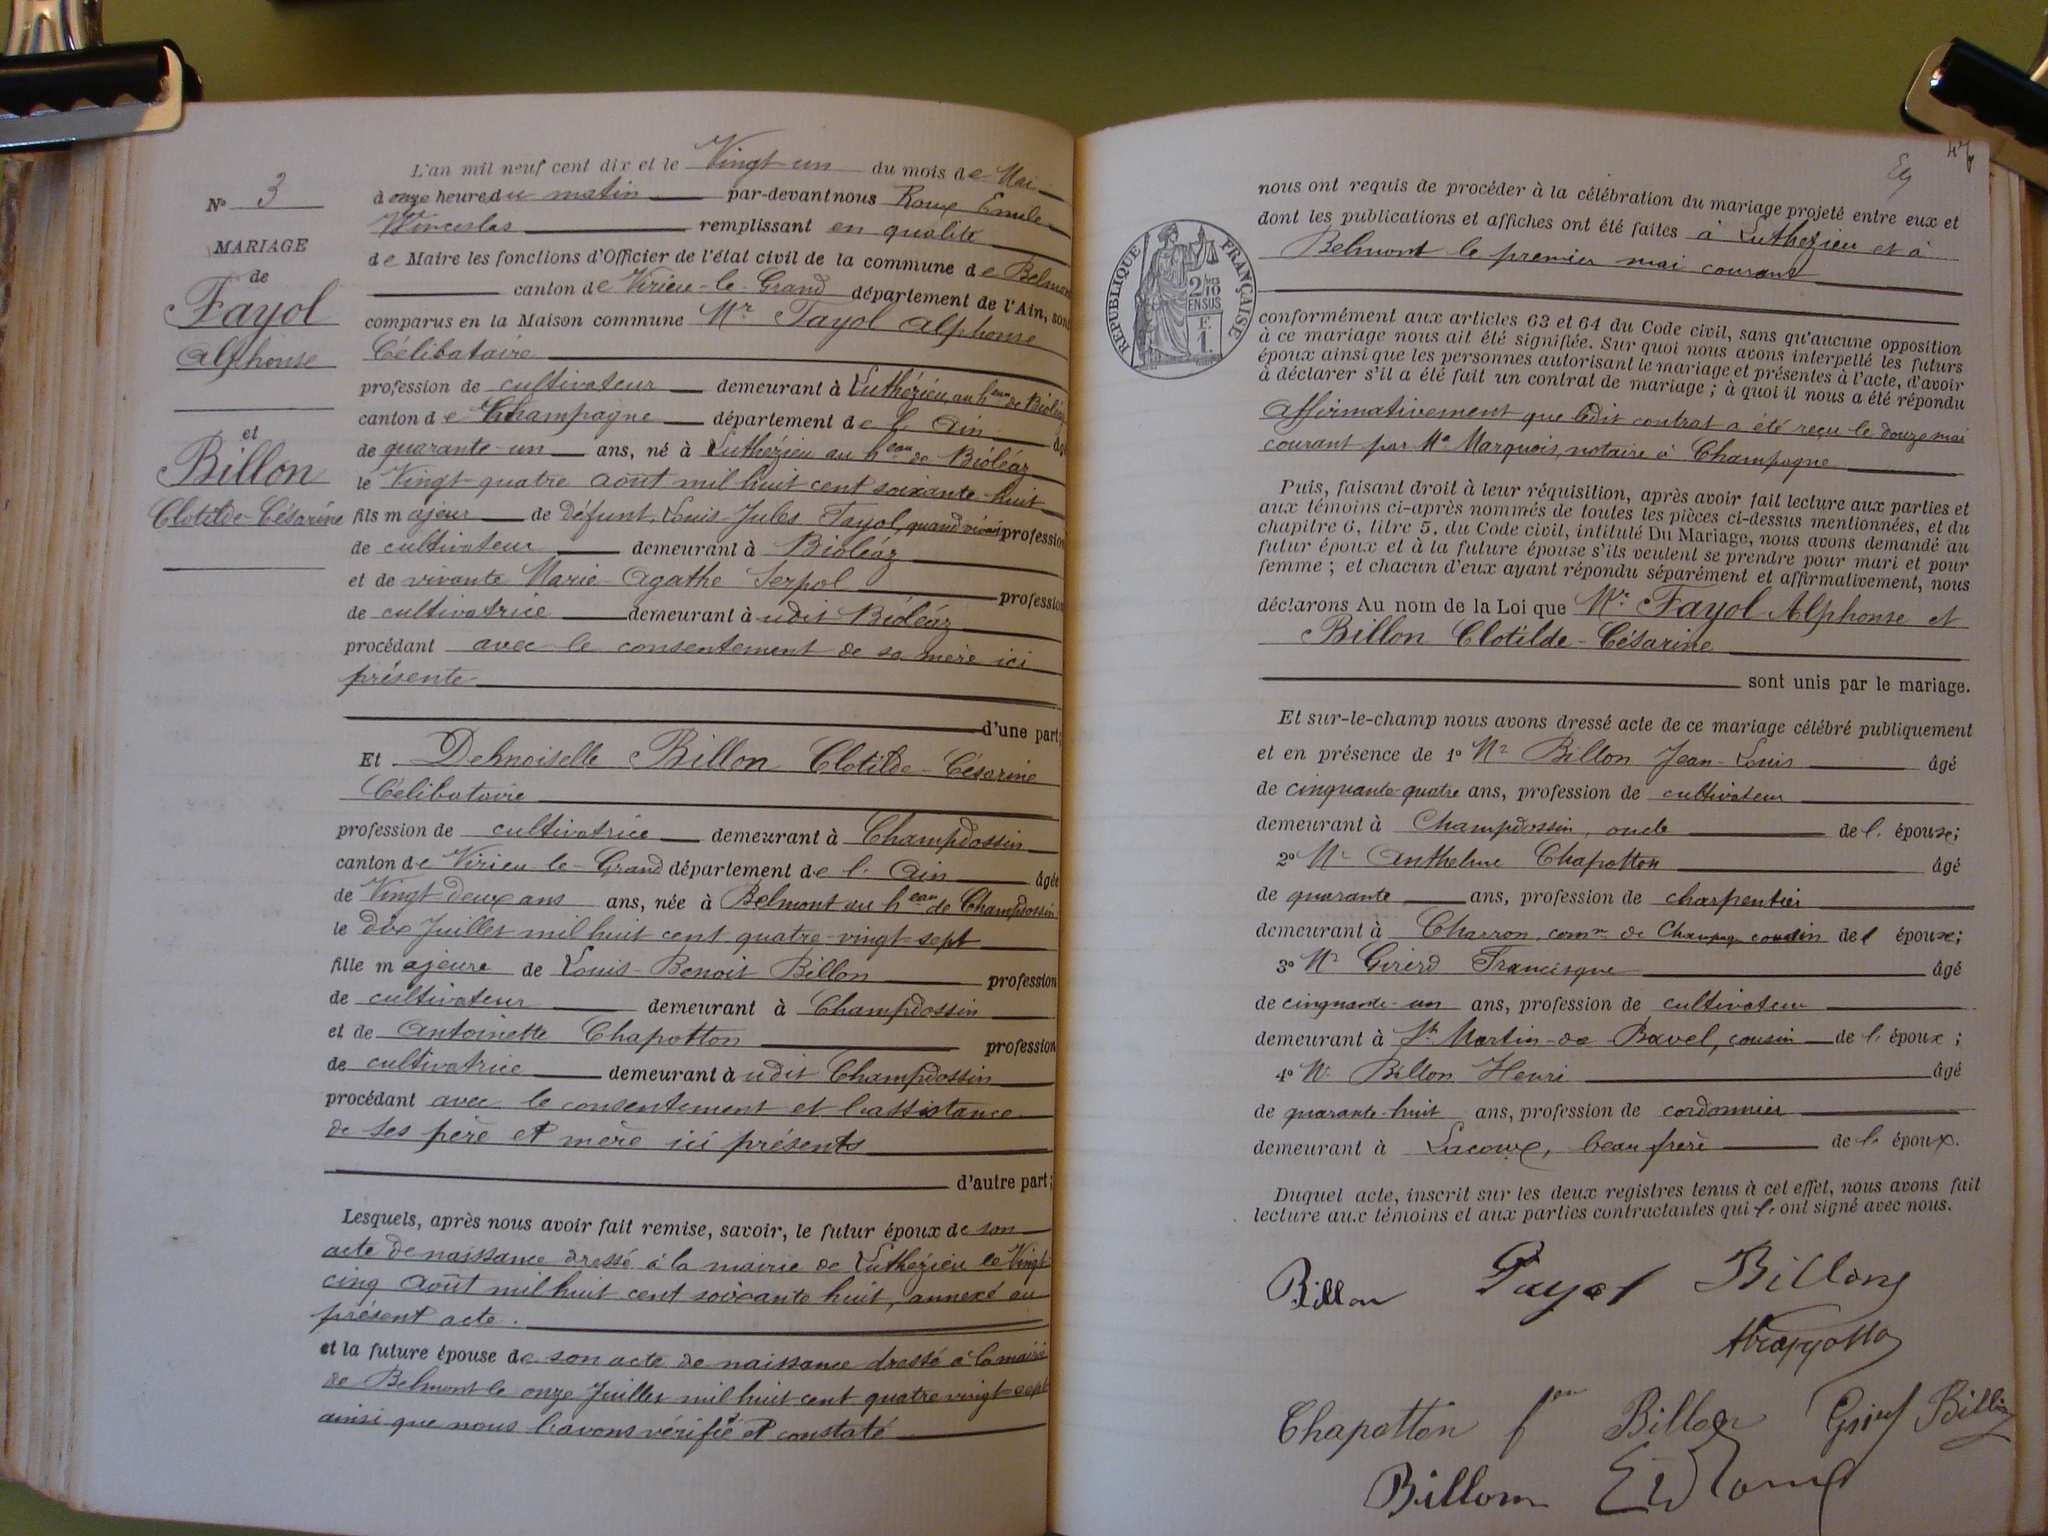 L'an mil neuf cent dix et le Vingt-un du mois de Mai
Nº 3
à onze heure du matin par-devant nous Roux Emile
Winceslas remplissant en qualité
MARIAGE
de Maire les fonctions d'Officier de l'état civil de la commune de Belmont
de
canton de Virieu-le-Grand département de l'Ain, sont
Fayol
comparus en la Maison commune Mr Fayol Alphonse
Alphonse
Célibataire
profession de cultivateur demeurant à Luthézieu au heau de Bioléaz
canton de Champagne département de l'Ain âgé
et
de quarante-un ans, né à Luthézieu au heau de Bioléaz
Billon
le Vingt-quatre août mil huit cent soixante-huit
Clotilde-Césarine
fils majeur de défunt Louis-Jules Fayol, quand vivait profession
de cultivateur demeurant à Bioléaz
et de vivante Marie-Agathe Serpol profession
de cultivatrice demeurant à udit Bioléaz
procédant avec le consentement de sa mère ici
présente
d'une part;
Et Demoiselle Billon Clotilde-Césarine
Célibataire
profession de cultivatrice demeurant à Champdossin
canton de Virieu-le-Grand département de l'Ain âgée
de Vingt-deux ans ans, née à Belmont au heau de Champdossin
le dix Juillet mil huit cent quatre-vingt-sept
fille majeure de Louis-Benoit Billon profession
de cultivateur demeurant à Champdossin
et de Antoinette Chapotton profession
de cultivatrice demeurant à udit Champdossin
procédant avec le consentement et l'assistance
de ses père et mère ici présents
d'autre part;
Lesquels, après nous avoir fait remise, savoir, le futur époux de son
acte de naissance dressé à la mairie de Luthézieu le Vingt
cinq août mil huit cent soixante huit, annexé au
présent acte.
et la future épouse de son acte de naissance dressé à la mairie
de Belmont le onze Juillet mil huit cent quatre vingt-sept
ainsi que nous l'avons vérifié et constaté
nous ont requis de procéder à la célébration du mariage projeté entre eux et
dont les publications et affiches ont été faites à Luthézieu et à
Belmont le premier mai courant
RÉPUBLIQUE FRANÇAISE
2/10 EN SUS
F. 1.
conformément aux articles 63 et 64 du Code civil, sans qu'aucune opposition
à ce mariage nous ait été signifiée. Sur quoi nous avons interpellé les futurs
époux ainsi que les personnes autorisant le mariage et présentes à l'acte, d'avoir
à déclarer s'il a été fait un contrat de mariage; à quoi il nous a été répondu
Affirmativement que ledit contrat a été reçu le douze mai
courant par Me Marquois, notaire à Champagne
Puis, faisant droit à leur réquisition, après avoir fait lecture aux parties et
aux témoins ci-après nommés de toutes les pièces ci-dessus mentionnées, et du
chapitre 6, titre 5, du Code civil, intitulé Du Mariage, nous avons demandé au
futur époux et à la future épouse s'ils veulent se prendre pour mari et pour
femme; et chacun d'eux ayant répondu séparément et affirmativement, nous
déclarons Au nom de la Loi que Mr. Fayol Alphonse et
Billon Clotilde-Césarine
sont unis par le mariage.
Et sur-le-champ nous avons dressé acte de ce mariage célébré publiquement
et en présence de 1º Mr Billon Jean-Louis âgé
de cinquante-quatre ans, profession de cultivateur
demeurant à Champdossin, oncle de l' épouse;
2º Mr Anthelme Chapotton âgé
de quarante ans, profession de charpentier
demeurant à Charron, comne de Champag cousin de l épouse;
3º Mr Girerd Francisque âgé
de cinquante-un ans, profession de cultivateur
demeurant à St Martin-de Bavel, cousin de l' époux;
4º Mr Billon Henri âgé
de quarante-huit ans, profession de cordonnier
demeurant à Lacoux, beau frère de l' époux.
Duquel acte, inscrit sur les deux registres tenus à cet effet, nous avons fait
lecture aux témoins et aux parties contractantes qui l' ont signé avec nous.
Billon Fayol Billon
Chapotton Billon Billon
Billon